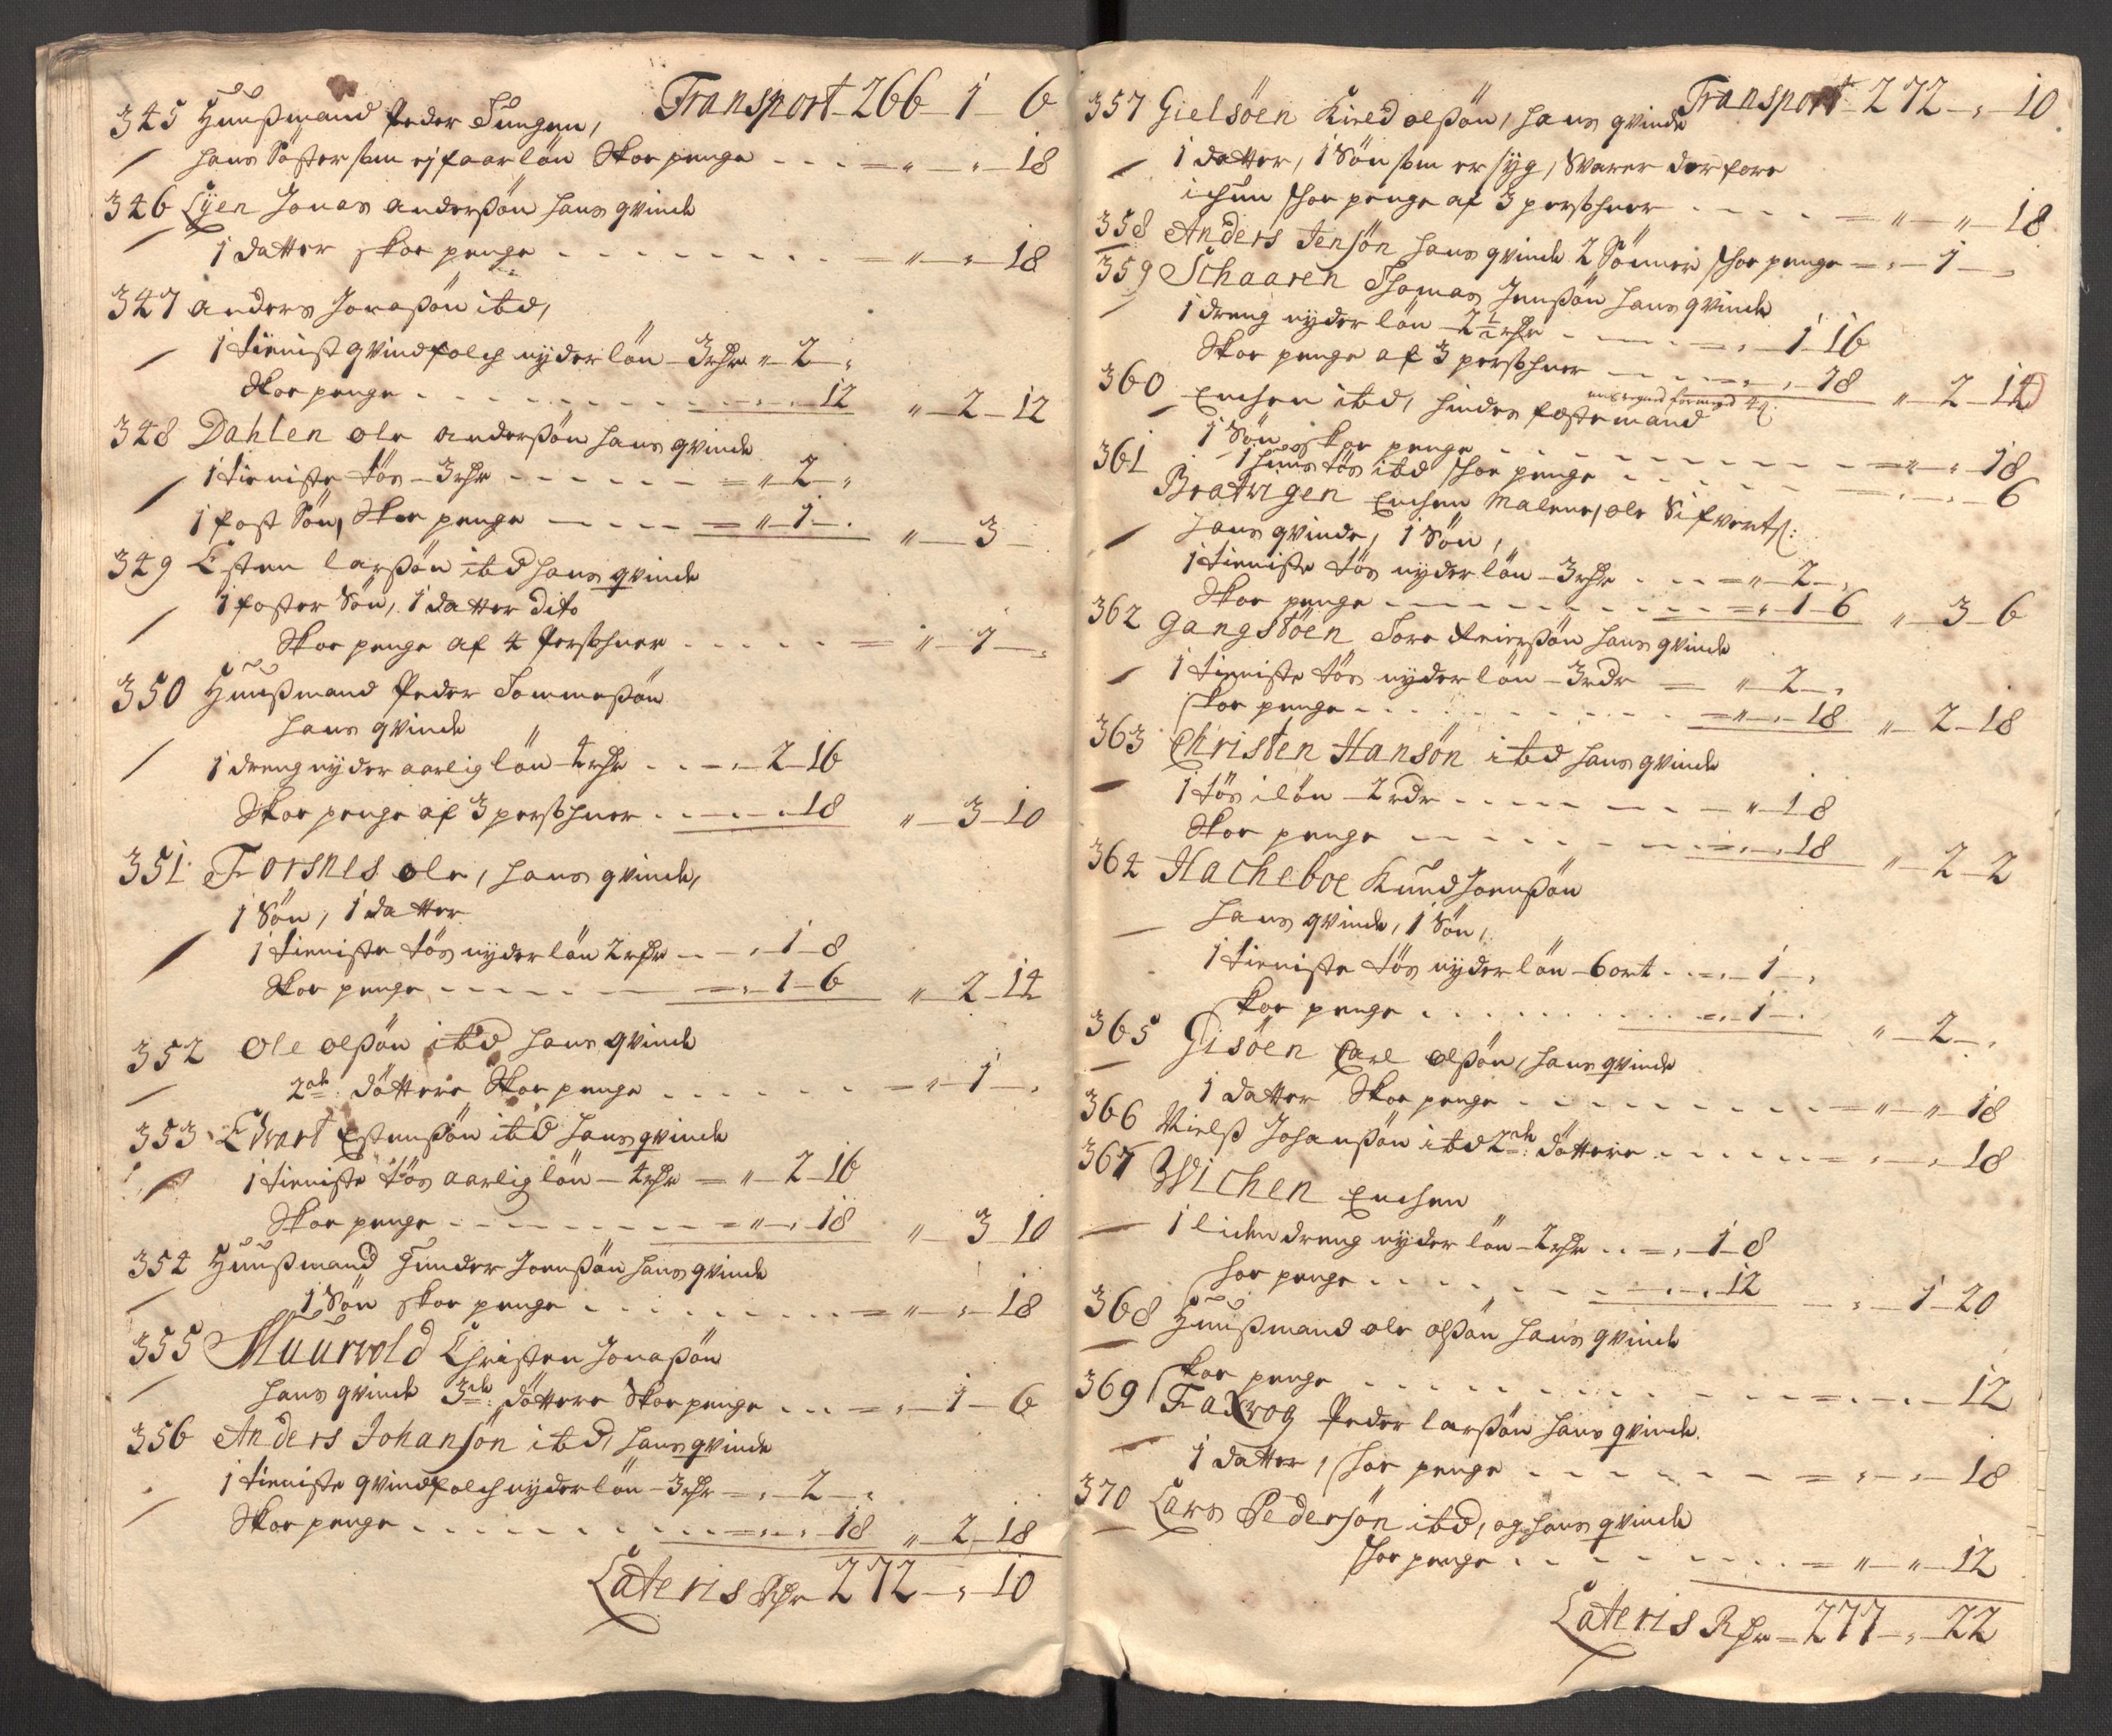 Transport - 266 - 1 - 6
345 Huusmand Peder Tungen,
hans Söster som ej faar lön Skoe penge - - - = " - " - 18
346 Lÿen Jonas anderßön hans qvinde
1 datter skoe penge - - - - - - - - = " - " - 18
347 anders Jonaßön ibd,
1 tienist qvindfolch nÿder lön - 3 rdr " 2 - "
Skoe penge - - - - - - - - - 12 " - 2 - 12
348 Dahlen ole anderßön hans qvinde
1 tieniste tös - 3 rdr - - - - - = " - 2 - "
1 fost Sön, Skoe penge - - - - = " - 1 - . " - 3 -
349 Esten larßön ibd hans qvinde
1 foster Sön, 1 datter dito
Skoe penge af 4 Persohner - - - - - = " - 1 - "
350 Huusmand Peder Tommeßön
hans qvinde
1 dreng nÿder aarlig lön - 4 rdr - - - " - 2 - 16
Skoe penge af 3 persohner - - - - 18 " - 3 - 10
351 Forsnes ole, hans qvinde,
1 Sön, 1 datter
1 tieniste tös nÿder lön 2 rdr - - " - 1 - 8
Skoe penge - - - - - - = " - 1 - 6 " - 2 - 14
352 Ole olßön ibd hans qvinde
2de döttere Skoe penge - - - - - - = " - 1 - "
353 Edvart Estenßön ibd hans qvinde
1 tieniste tös aarlig lön - 4 rdr - = " - 2 - 16
Skoe penge - - - - - - - = " - " - 18 " - 3 10
354 Huusmand Gunder Joenßön hans qvinde
1 Sön skoe penge - - - - - - - - = " - " - 18
355 Muurvold Christen Jonaßön
hans qvinde 3de döttere Skoe penge - - - = " - 1 - 6
356 Anders Johansön ibd, hans qvinde
1 tieniste qvindfolch nÿder lön - 3 rdr - " - 2 - "
Skoe penge - - - - - - - - = " - " - 18 " - 2 - 18
Lateris Rdr - 272 - " - 10
Transport - 272 - " - 10
357 Gielsöen Kield olßön, hans qvinde
1 datter, 1 Sön som er sÿg, Svarer derfore
ichun skoe penge af 3 persohner - - - - = " - " - 18
358 Anders Jensön hans qvinde 2 Sönner skoe penge - " - 1 - "
359 Schaaren Thomas Jenßön hans qvinde
1 dreng nÿder lön - 2½ rdr - - - - = " - 1 - 16
Skoe penge af 3 persohner - - - - - 18 " - 2 - 10
360 Enchen ibd, hindes festemand
1 Sön skoe penge - - - - - - - - - = " - " - 18
1 huus tös ibd skoe penge - - - - - - " - " - 6
361 Bratvigen Enchen Malene, ole Sifverts:
hans qvinde, 1 Sön,
1 tieniste tös nÿder lön - 3 rdr - - - = " - 2 - "
Skoe penge - - - - - - - - = " - 1 - 6 " - 3 - 6
362 Gangstöen Tore Reierßön hans qvinde
1 tieniste tös nÿder lön - 3 rdr = " - 2 - "
skoe penge - - - - - - - - - = " - " - 18 " - 2 - 18
363 Christen Hansön ibd hans qvinde
1 tös i lön - 2 rdr - - - - - - - - " - 1 8
Skoe penge - - - - - - - - = " - " - 18 " - 2 - 2
364 Hacheboe Knud Joenßön
hans qvinde, 1 Sön,
1 tieniste tös nÿder lön - 6 ort - - - " - 1 - "
skoe penge - - - - - - - - - = " - 1 - " - 2 - "
365 Gisöen Carl olßön, hans qvinde
1 datter Skoe penge - - - - - - - = " - " - 18
366 Nielß Johanßön ibd 2de döttere - - - - - - = " - " - 18
367 Wichen Enchen
1 liden dreng nÿder lön - 2 rdr - - = " - 1 - 8
skoe penge - - - - - - - - " - 12 - " - 1 - 20
368 Huusmand ole olßön hans qvinde
skoe penge - - - - - - - - - - = " - " - 12
369 Faxvog Peder larßön hans qvinde
1 datter, skoe penge - - - - - - - = " - " - 18
370 Lars Pedersön ibd, og hans qvinde
skoe penge - - - - - - - = " - " - 12
Lateris Rdr - 277 - " - 22